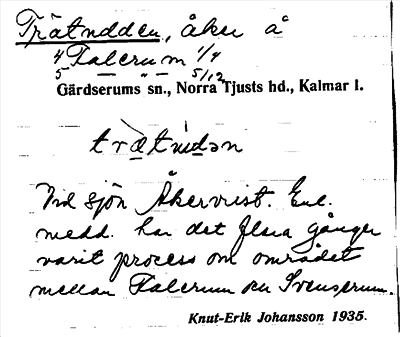 Trätudden, åker å
4 Falerum 1/4
5 — " — 5/12
Gärdserums sn., Norra Tjusts hd., Kalmar l.
Vid sjön Åkervrist. Enl.
medd. har det flera gånger
varit process om området
mellan Falerum och Svenserum.
Knut-Erik Johansson 1935.